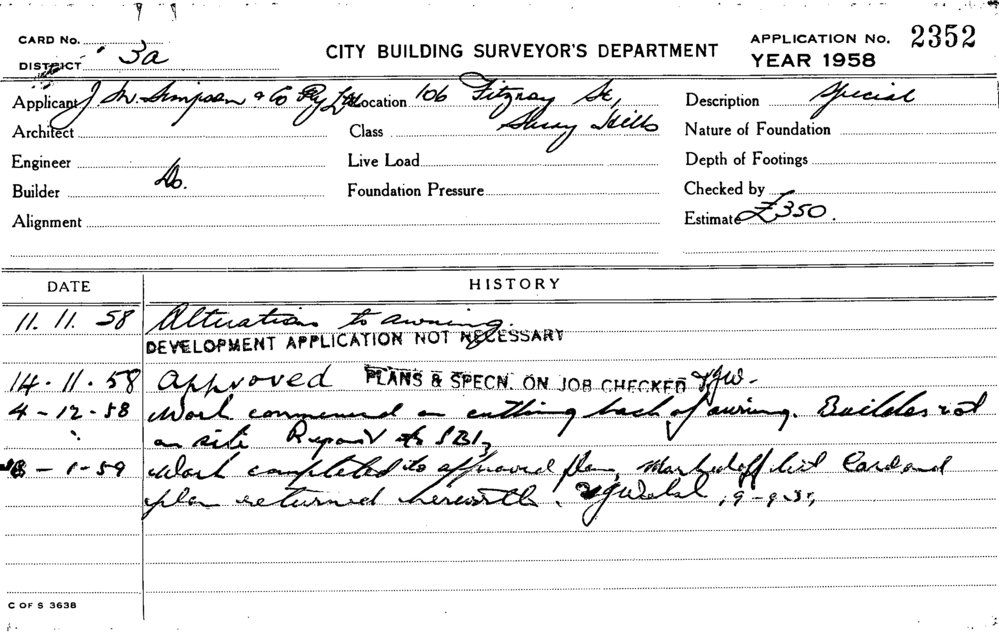 CARD No.
DISTRICT 3a
CITY BUILDING SURVEYOR'S DEPARTMENT
APPLICATION No. 2352
YEAR 1958
Applicant J. W. Simpson & Co Pty Ltd
Location 106 Fitzroy St,
Surry Hills
Description Special
Architect
Class
Nature of Foundation
Engineer
Live Load
Depth of Footings
Builder Do.
Foundation Pressure
Checked by
Alignment
Estimate £350.
DATE HISTORY
11.11.58 Alterations to awning.
DEVELOPMENT APPLICATION NOT NECESSARY
14-11-58 Approved PLANS & SPECN. ON JOB CHECKED
4-12-58 Work commenced on cutting back of awning. Builder not
on site Report to SBI,
-1-59 Work completed to approved plan, Marked off list Card and
plan returned herewith.
C OF S 3638